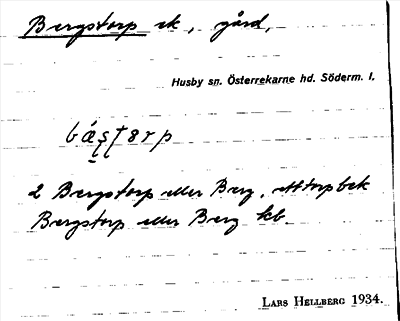 Bergstorp ek, gård,
Husby sn. Österrekarne hd. Söderm. l.
2 Bergstorp eller Berg, ett torp bek
Bergstorp eller Berg kb.
LARS HELLBERG 1934.